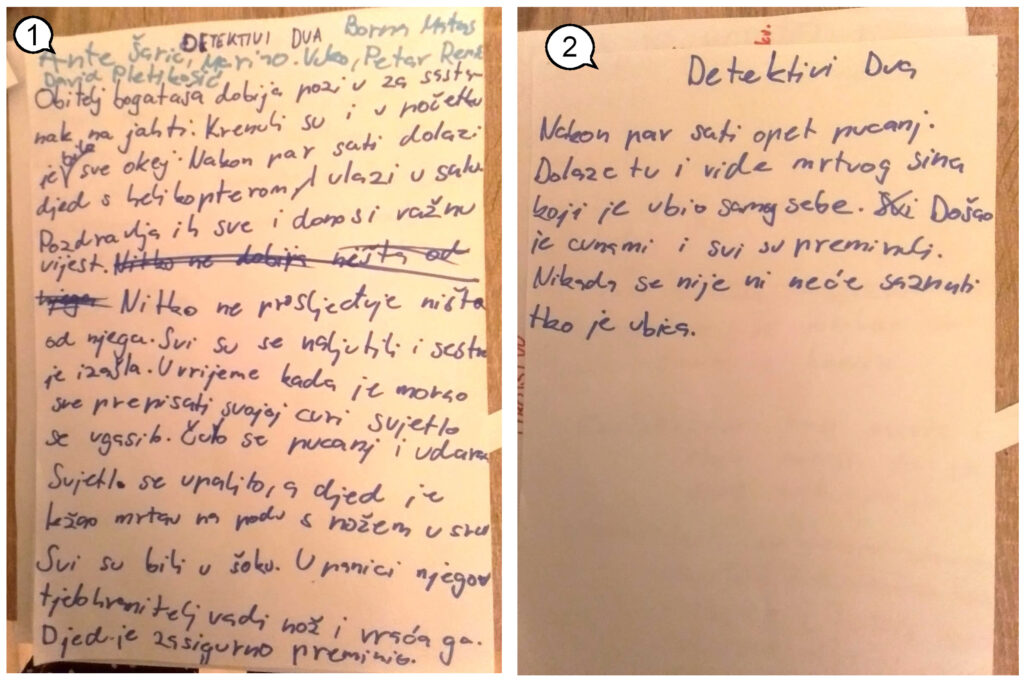 1
DETEKTIVI DUA Borna Matas
Ante Šarić, Marino Vuko, Petar Renić
David Pletikosić
Obitelj bogataša dobija poziv za sasta-
nak na jahti. Krenuli su i u početku
je bilo sve okej. Nakon par sati dolazi
djed s helikopterom, ulazi u salu.
Pozdravlja ih sve i donosi važnu
vijest. Nitko ne dobija ništa od
njega Nitko ne prosljeđuje ništa
od njega. Svi su se naljutili i sestra
je izašla. U vrijeme kada je morao
sve prepisati svojoj curi svjetlo
se ugasilo. Čulo se pucanj i udarac
Svjetlo se upalilo, a djed je
ležao mrtav na podu s nožem u srcu
Svi su bili u šoku. U panici njegov
tjelohranitelj vadi nož i vraća ga.
Djed je zasigurno preminio.
2
Detektivi Dva
Nakon par sati opet pucanj.
Dolaze tu i vide mrtvog sina
koji je ubio samog sebe. Svi Došao
je cunami i svi su preminuli.
Nikada se nije ni neće saznati
tko je ubica.